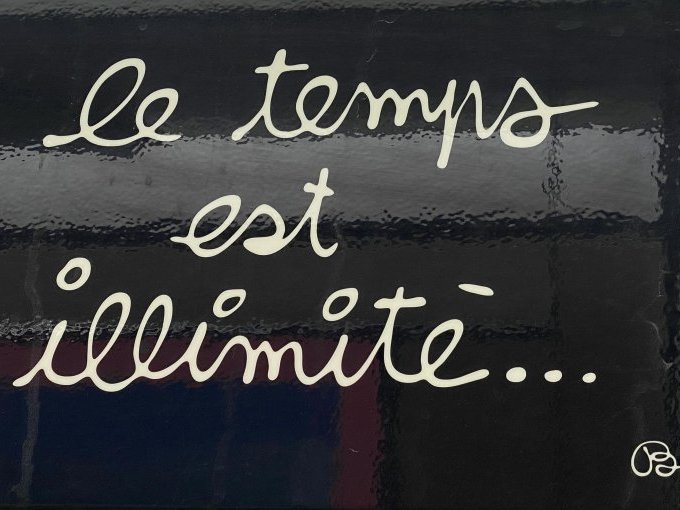 le temps
est
illimitè...
B